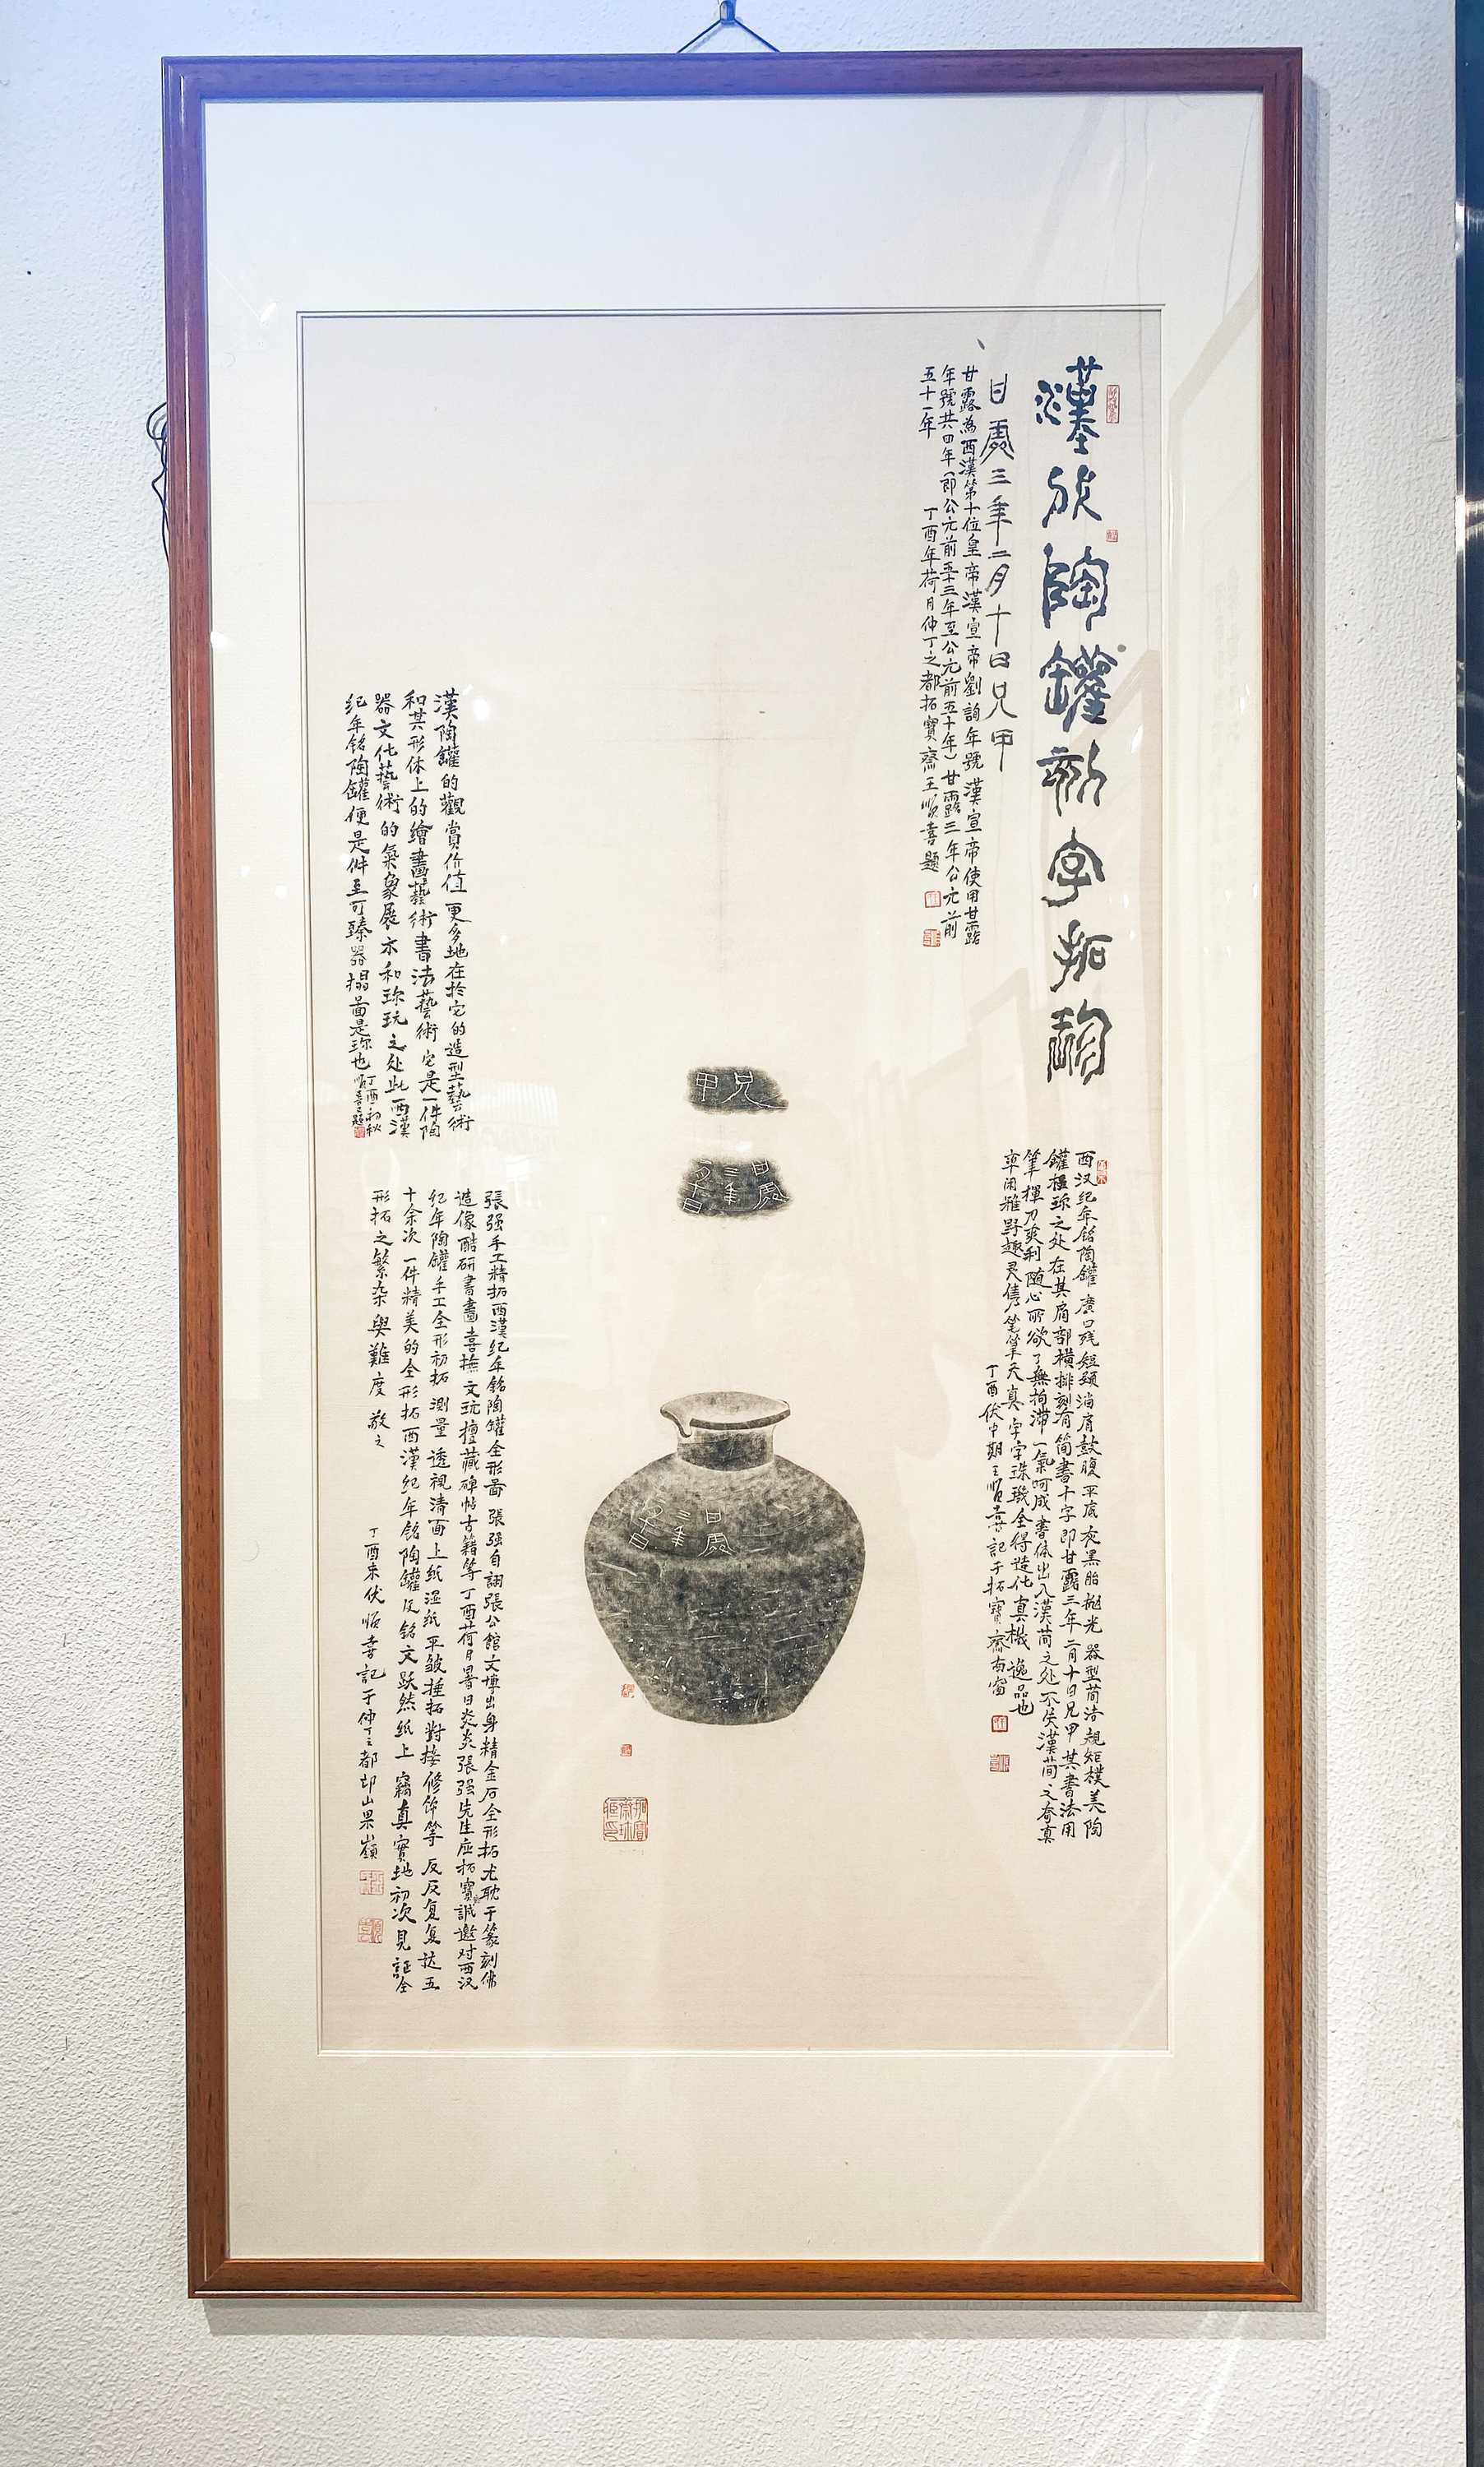 漢放陶罐刻字拓韵
甘露三年二月十日兄甲
甘露為西漢第十位皇帝漢宣帝劉詢年號漢宣帝使用甘露
年號共四年（即公元前五十三年至公元前五十年）甘露三年公元前
五十一年
丁酉年荷月仲丁之都拓寶齋王順喜題
西汉纪年铭陶罐廣口残短頸淌肩鼓腹平底灰黑胎抛光器型简洁規矩樸美陶
罐極珎之处在其肩部横排刻有简書十字即甘露三年二月十日兄甲其書法用
筆揮刀爽利随心所欲了無拘滞一氣呵成書体出入漢简之处不失漢简之奇真
率闲雅野趣灵隽笔笔天真字字珠璣全得造化真機逸品也
丁酉伏中期王順喜記于拓寶齋南窗
兄甲
甘露三年二月十日
甘露三年二月十日
漢陶罐的觀賞价值更多地在於它的造型藝術
和其形体上的繪畫藝術書法藝術它是一件陶
器文化藝術的氣象展示和珎玩之处此西漢
纪年铭陶罐便是件至可臻器搨啚是珎也
丁酉初秋
順喜題
張强手工精拓西漢纪年铭陶罐全形啚張强自詡張公館文博出身精金石全形拓尤耽于篆刻佛
造像酷研書畫喜撫文玩擅藏碑帖古籍等丁酉荷月暑日炎炎張强先生应拓寶齋誠邀对西汉
纪年陶罐手工全形初拓测量透視清面上纸湿纸平皱捶拓對接修饰等反反复复达五
十余次一件精美的全形拓西漢纪年铭陶罐及铭文跃然纸上竊真實地初次見証全
形拓之繁杂與難度敬之
丁酉末伏順喜記于仲丁之都邙山果嶺